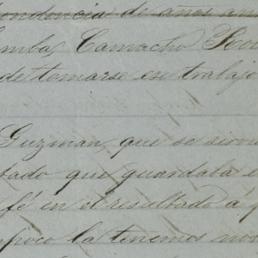 pendencia de años an
omba, Camacho, Sori
de tomarse ese trabajo
Guzman, que se sirvie
tado que guardaba e
fé en el resultado á q
poco la tenemos nos